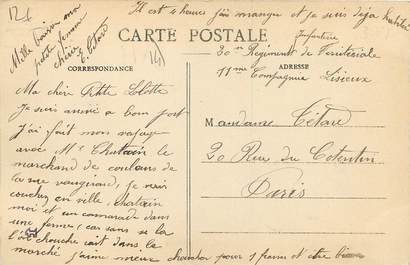 Il est 4 heures j'ai mangé et je suis déja habillé
Mille baisers ma
petite femme
chérie
E. Tétard
CARTE POSTALE
Infanterie
30em Régiment de Territoriale
11me Compagnie Lisieux
CORRESPONDANCE
ADRESSE
Ma chère Petite Lolotte
Je suis arrivé a bon port
J'ai fait mon voyage
avec Mr Chatain le
marchand de couleurs de
la rue vaugirard, je suis
coucher en ville, Chatain
moi et un camarade dans
une ferme, car sans se la
l'on chouche sait dans le
marché j'aime mieux choucher pour 1 franc et être bien
Madame Tétard
20 Rue du Cotentin
Paris